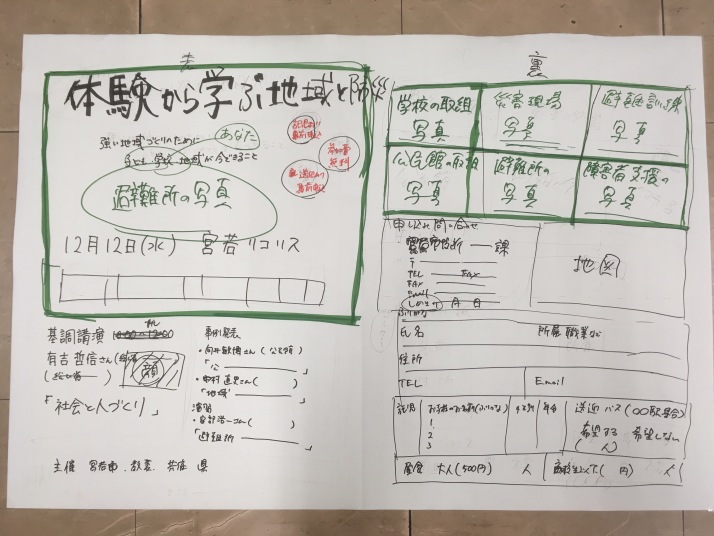 表
体験から学ぶ地域と防災
強い地域づくりのために
あなた
学校 地域が今できること
避難所の写真
無料
12月12日(水) 宮若リコリス
基調講演
有吉 哲信さん
顔
「社会と人づくり」
事例発表
・向井敏博さん(
公
」
・中村直史さん( )
「地域
」
演習
さん( )
「避難所
」
主催 宮若市
県
裏
学校の取組
写真
災害現場
写真
避難訓練
写真
公民館の取組
写真
避難所の
写真
障害者支援の
写真
申し込み 問い合せ
課
〒
TEL FAX
FAX
email
しめきり 月 日
地図
ふりがな
氏名 所属 職業など
住所
TEL Email
託児 お子様のお名前(ふりがな) 年令
1
2
3
送迎バス(○○駅集合)
希望する 希望しない
( 人)
昼食 大人(500円) 人
( 円) 人